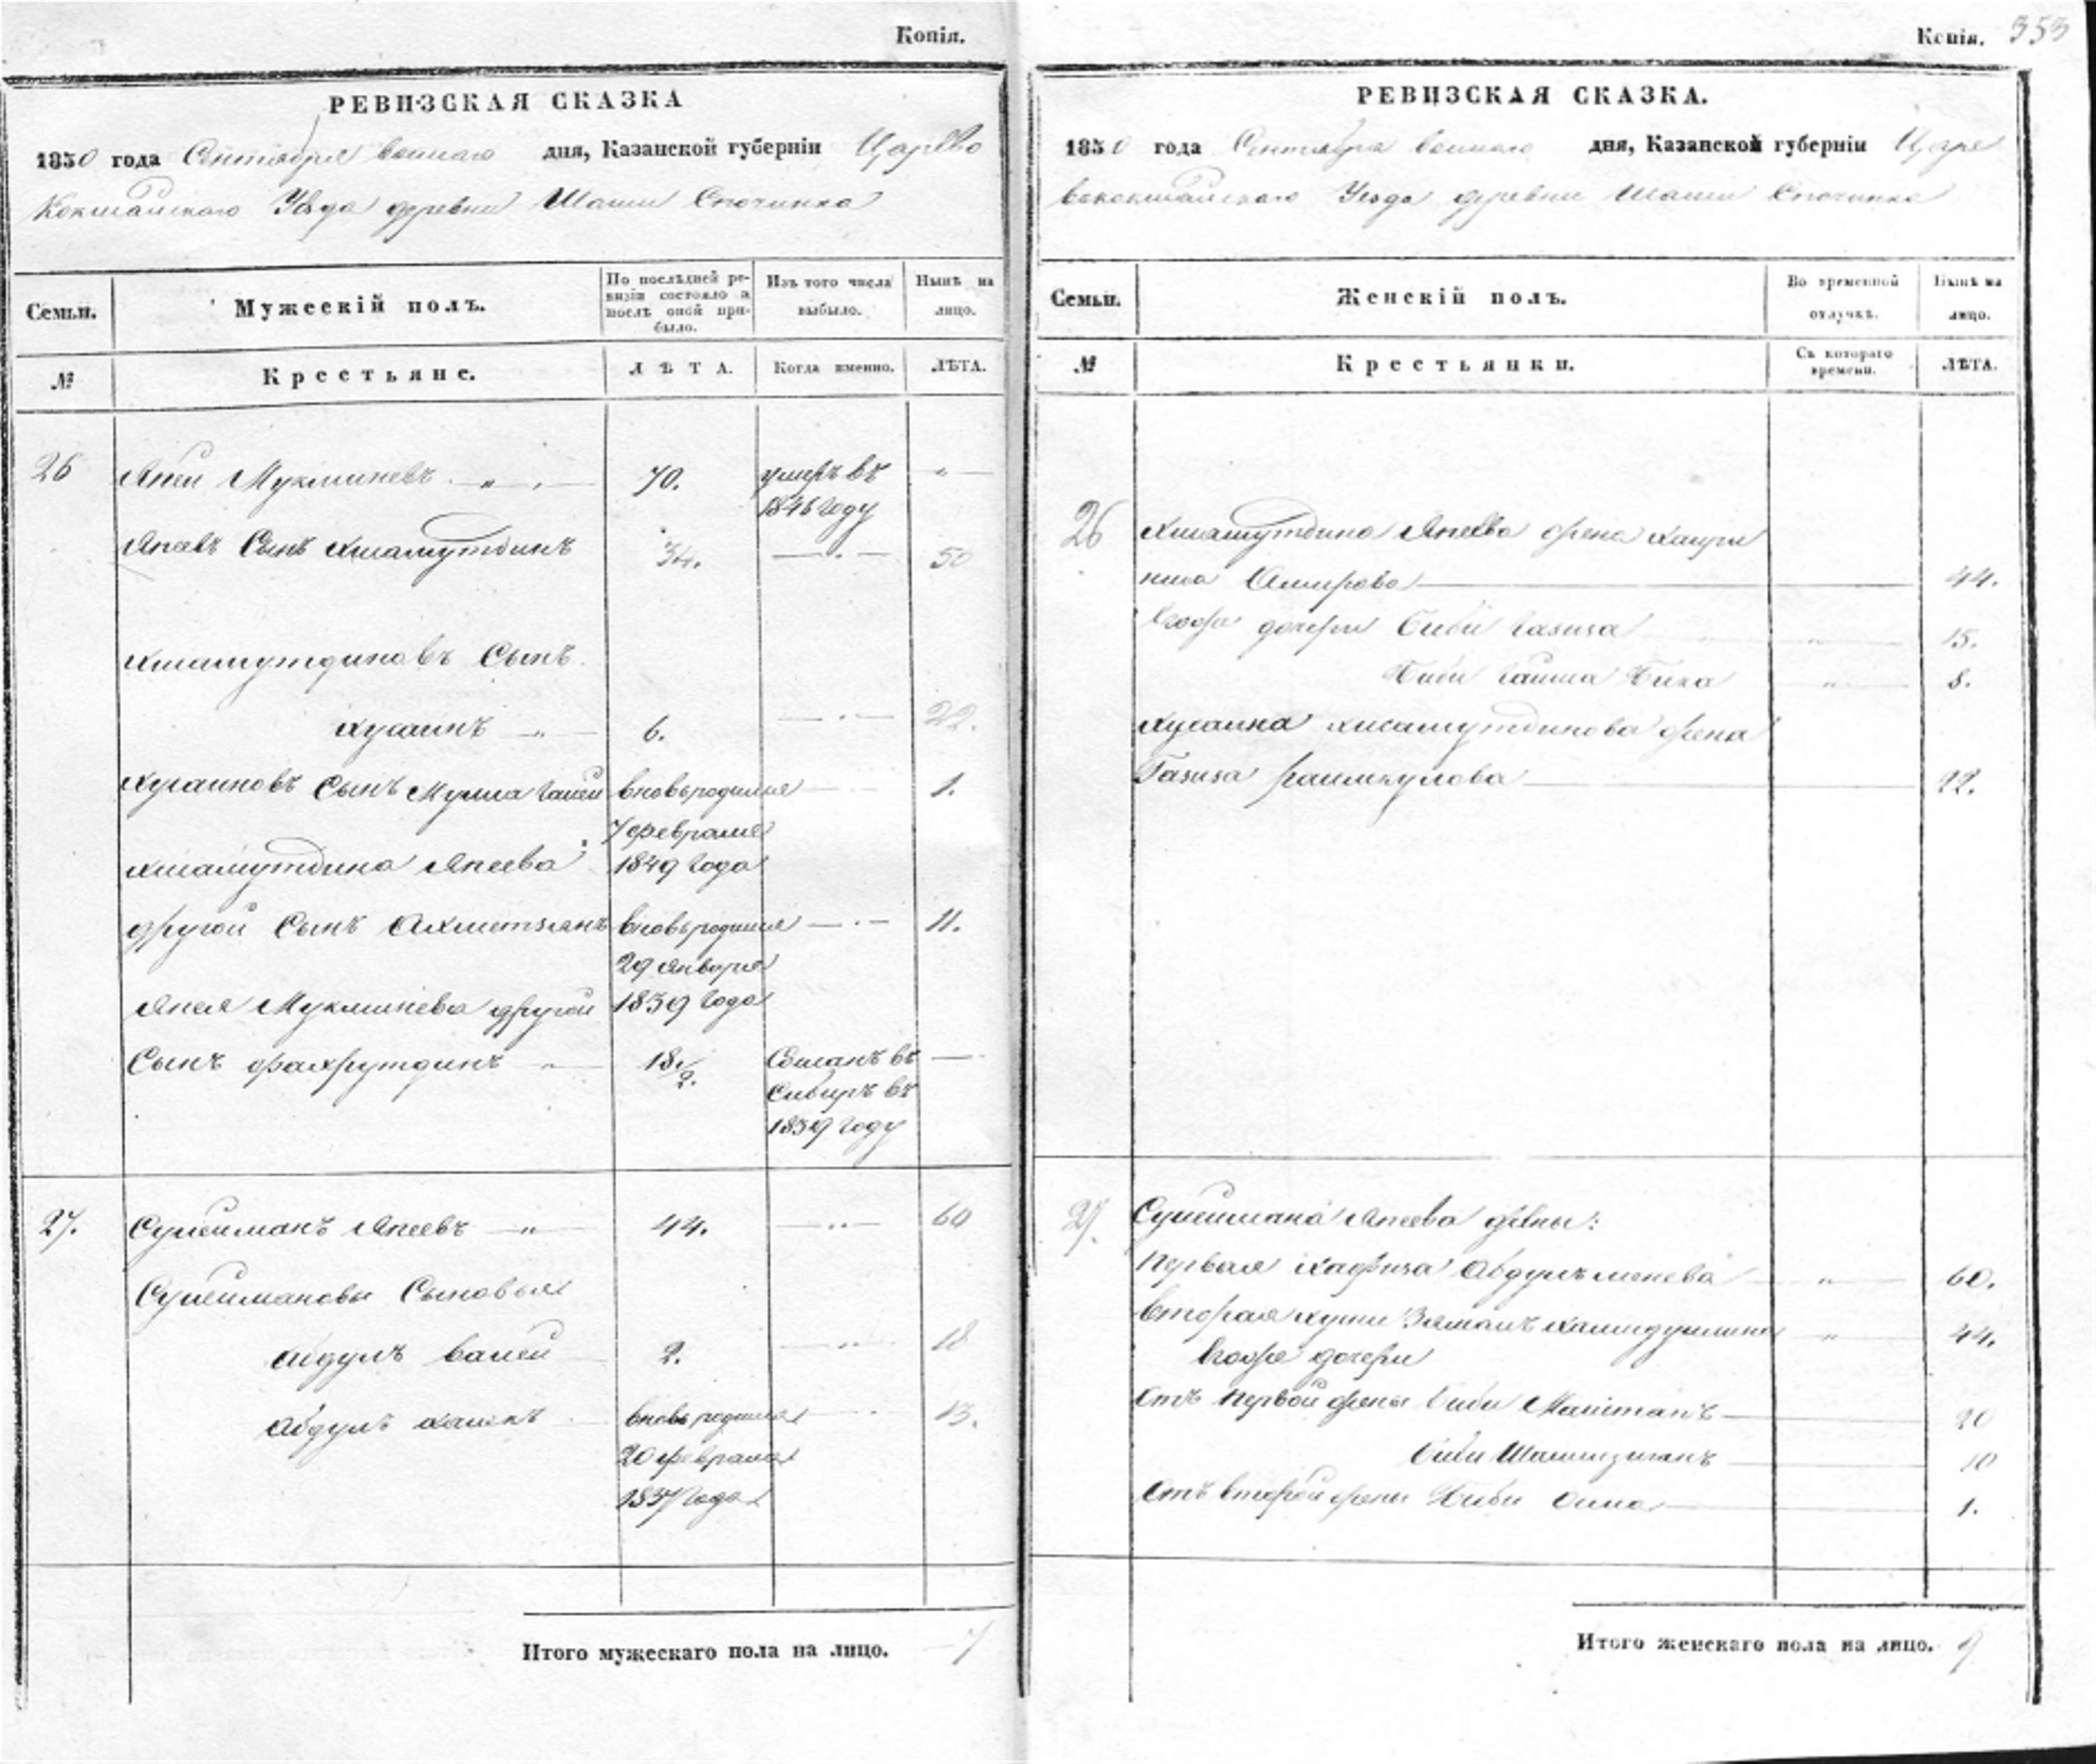 Копія.
РЕВИЗСКАЯ СКАЗКА
1850 года Сентября дня, Казанской губерніи Царево
Кокшайскаго Уѣзда деревни Шаши Спочинка
Семьи.
Мужескій полъ.
По послѣдней ре-
визіи состояло а
послѣ оной при-
было.
Изъ того числа
выбыло.
Нынѣ на
лицо.
№
Крестьяне.
ЛѢТА.
Когда именно.
ЛѢТА.
26 Апей Мукминевъ „ 70. умеръ въ „
1846 году
Апеевъ Сынъ Хисамутдинъ 34. „ 50
Хисамутдиновъ Сынъ
Хусаинъ „ 6. „ 22.
Хусаиновъ Сынъ Мулла Галей вновьродился 1.
7 февраля
Хисамутдина Апеева 1849 года
другой Сынъ Ахметзянъ вновьродился „ 11.
29 Января
Апея Мукминева другой 1839 года
Сынъ Фахрутдинъ „ 18. 1/2. Сосланъ въ
Сибирь въ
1839 году
27. Сулейманъ Апеевъ „ 44. „ 60
Сулеймановы Сыновья
Абдулъ Валей 2. „ 18
Абдулъ вновь родился 13.
20 февраля
1837 года
Итого мужескаго пола на лицо. 7
Копія. 353
РЕВИЗСКАЯ СКАЗКА.
1850 года Сентября дня, Казанской губерніи Царе
вококшайскаго Уезда деревни Шаши Спочинка
Семьи.
Женскій полъ.
Во временной
отлучкѣ.
Нынѣ на
лицо.
№
Крестьянки.
Съ котораго
времени.
ЛѢТА.
26 Хисамутдина Апеева жена
Амирова 44.
дочери Биби Газиза „ 15.
Биби Гайша Бика „ 8.
Хусаина Хисамутдинова жена
Газиза 22.
27. Сулеймана Апеева жены:
Первая Хафиза „ 60.
Вторая Зямалъ „ 44.
дочери
Отъ первой жены Биби 20
Биби 10
Отъ второй жены Биби 1.
Итого женскаго пола на лицо. 9